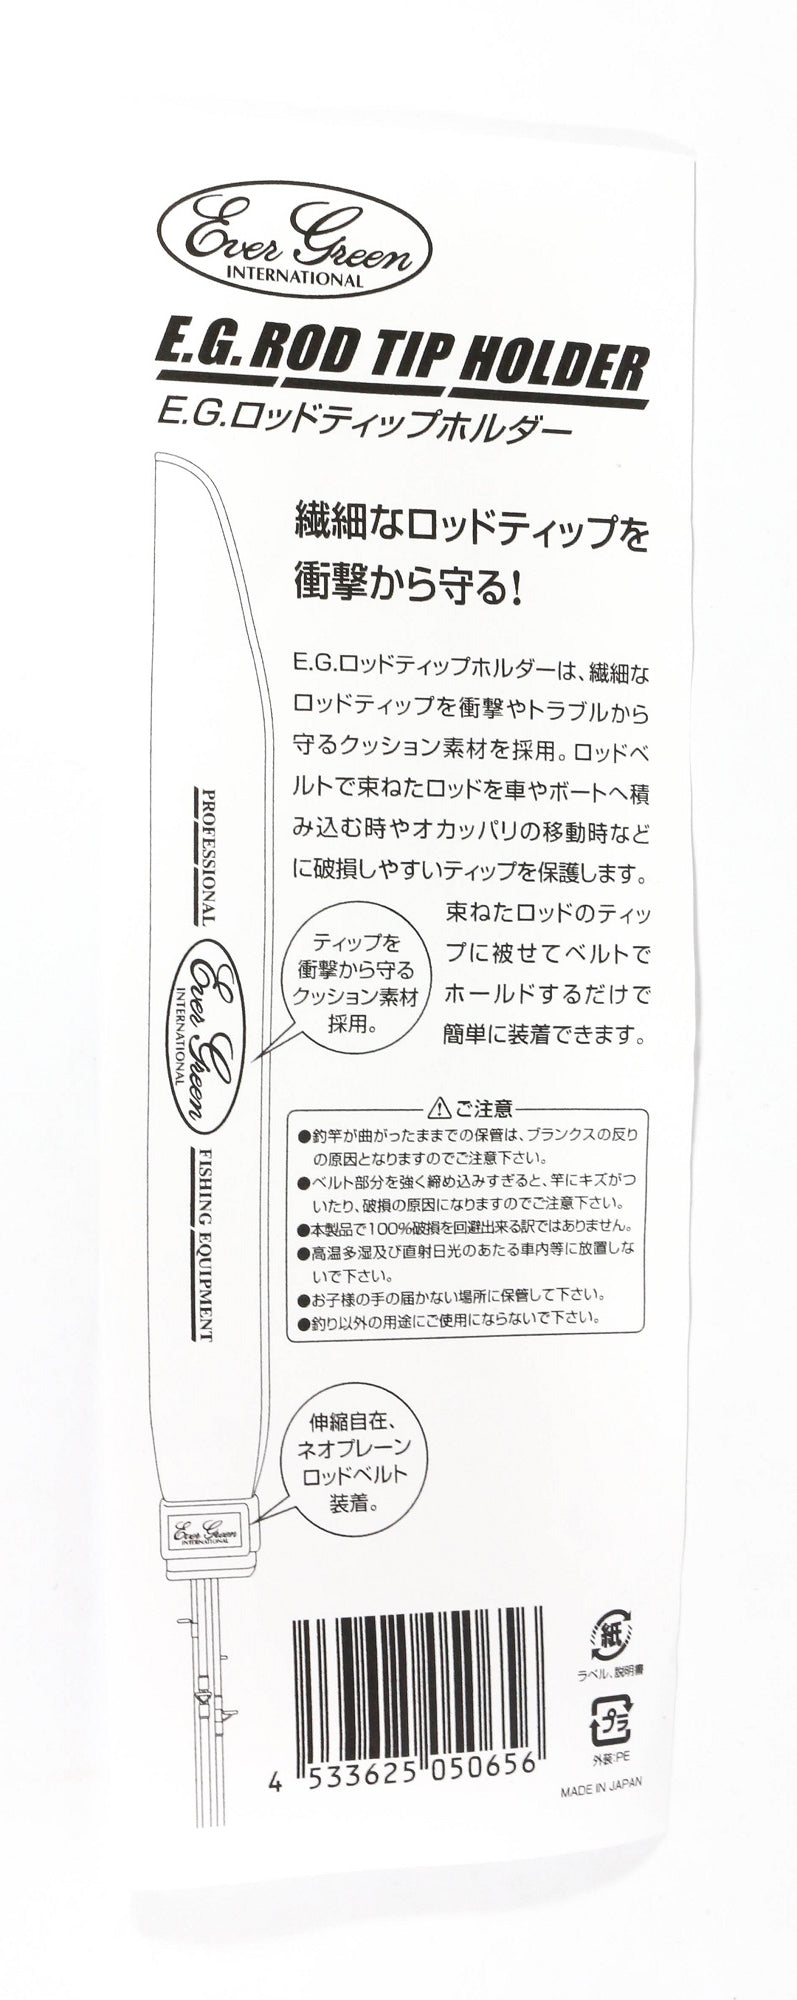 Ever Green
INTERNATIONAL
E.G. ROD TIP HOLDER
E.G.ロッドティップホルダー
繊細なロッドティップを
衝撃から守る!
E.G.ロッドティップホルダーは、繊細な
ロッドティップを衝撃やトラブルから
守るクッション素材を採用。ロッドベ
ルトで束ねたロッドを車やボートへ積
み込む時やオカッパリの移動時など
に破損しやすいティップを保護します。
束ねたロッドのティッ
プに被せてベルトで
ホールドするだけで
簡単に装着できます。
ティップを
衝撃から守る
クッション素材
採用。
PROFESSIONAL
Ever Green
INTERNATIONAL
FISHING EQUIPMENT
⚠ご注意
●釣竿が曲がったままでの保管は、ブランクスの反り
の原因となりますのでご注意下さい。
●ベルト部分を強く締め込みすぎると、竿にキズがつ
いたり、破損の原因になりますのでご注意下さい。
●本製品で100%破損を回避出来る訳ではありません。
●高温多湿及び直射日光のあたる車内等に放置しな
いで下さい。
●お子様の手の届かない場所に保管して下さい。
●釣り以外の用途にご使用にならないで下さい。
伸縮自在、
ネオプレーン
ロッドベルト
装着。
Ever Green
INTERNATIONAL
4 533625 050656
紙
ラベル、説明書
プラ
外装:PE
MADE IN JAPAN